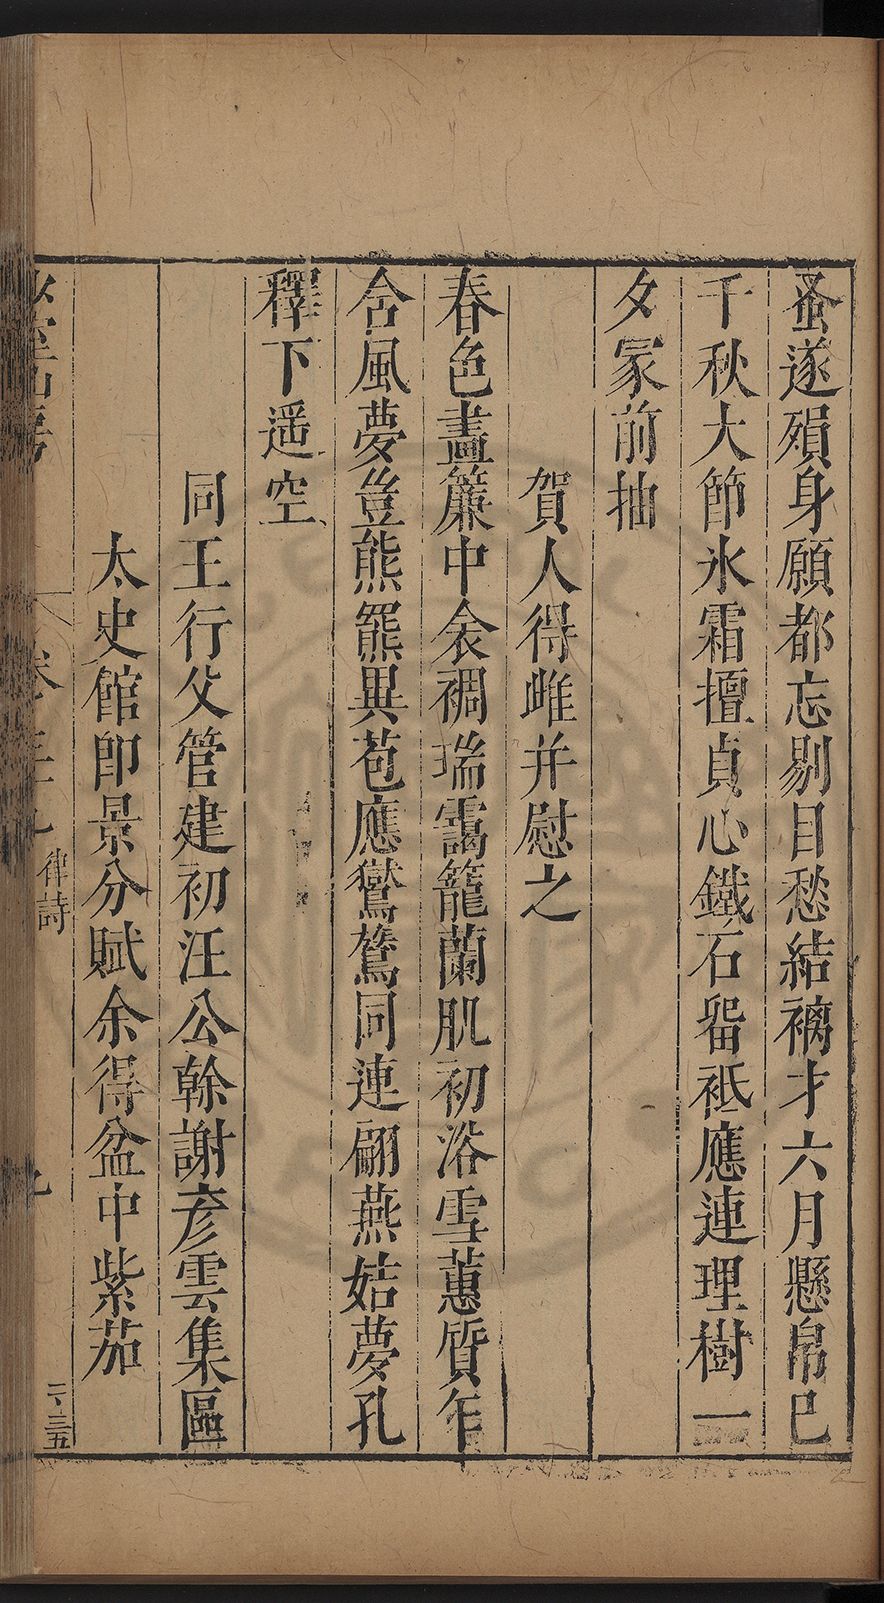 蚤遂殞身願都忘剔目愁結褵才六月懸帛巳
千秋大節氷霜擅貞心鐵石畱袛應連理樹一
夕冢前抽
賀人得雌并慰之
春色畫簾中衾裯瑞靄籠蘭肌初浴雪蕙質乍
含風夢豈熊羆異苞應鸑鷟同連翩燕姞夢孔
釋下遥空
同王行父管建初汪公幹謝彥雲集區
太史館卽景分賦余得盆中紫茄
卷三十七
律詩
二、三五